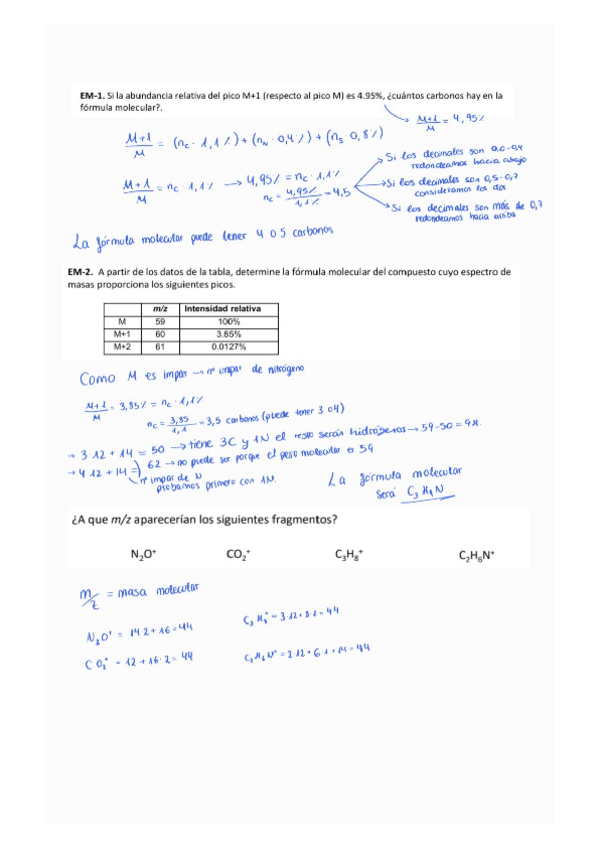 EM-1. Si la abundancia relativa del pico M+1 (respecto al pico M) es 4.95%, ¿cuántos carbonos hay en la
fórmula molecular?.
M+1/M = 4,95%
M+1/M = (nc · 1,1%) + (nN · 0,4%) + (ns · 0,8%)
M+1/M = nc · 1,1% → 4,95% = nc · 1,1%
nc = 4,95%/1,1% = 4,5
Si los decimales son 0,0-0,4
redondeamos hacia abajo
Si los decimales son 0,5-0,7
consideramos los dos
Si los decimales son más de 0,7
redondeamos hacia arriba
La fórmula molecular puede tener 4 o 5 carbonos
EM-2. A partir de los datos de la tabla, determine la fórmula molecular del compuesto cuyo espectro de
masas proporciona los siguientes picos.
m/z Intensidad relativa
M 59 100%
M+1 60 3.85%
M+2 61 0.0127%
Como M es impar → nº impar de nitrógeno
M+1/M = 3,85% = nc · 1,1%
nc = 3,85/1,1 = 3,5 carbonos (puede tener 3 o 4)
→ 3·12 + 14 = 50 → tiene 3C y 1N el resto serán hidrógenos → 59-50 = 9H.
→ 4·12 + 14 = 62 → no puede ser porque el peso molecular es 59
nº impar de N
probamos primero con 1N.
La fórmula molecular
será C3H9N
¿A que m/z aparecerían los siguientes fragmentos?
N2O+ CO2+ C3H8+ C2H6N+
m/z = masa molecular
N2O+ = 14·2+16=44
C3H8+ = 3·12+8·1=44
CO2+ = 12+16·2=44
C2H6N+ = 2·12+6·1+14=44